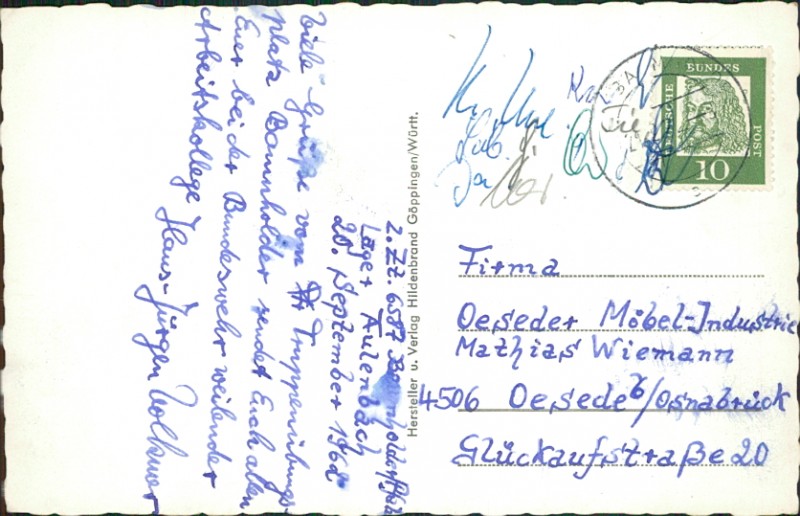 z. Zt. 6587 Baumholder/Nahe
Lager Aulenbach
20. September 1962
Viele Grüße vom Truppenübungs-
platz Baumholder sendet Euch allen
Euer bei der Bundeswehr weilender
Arbeitskollege Hans-Jürgen Volkmer
Hersteller u. Verlag Hildenbrand Göppingen/Württ.
DEUTSCHE
BUNDES
POST
10
Firma
Oeseder Möbel-Industrie
Mathias Wiemann
4506 Oesede b/Osnabrück
Glückaufstraße 20